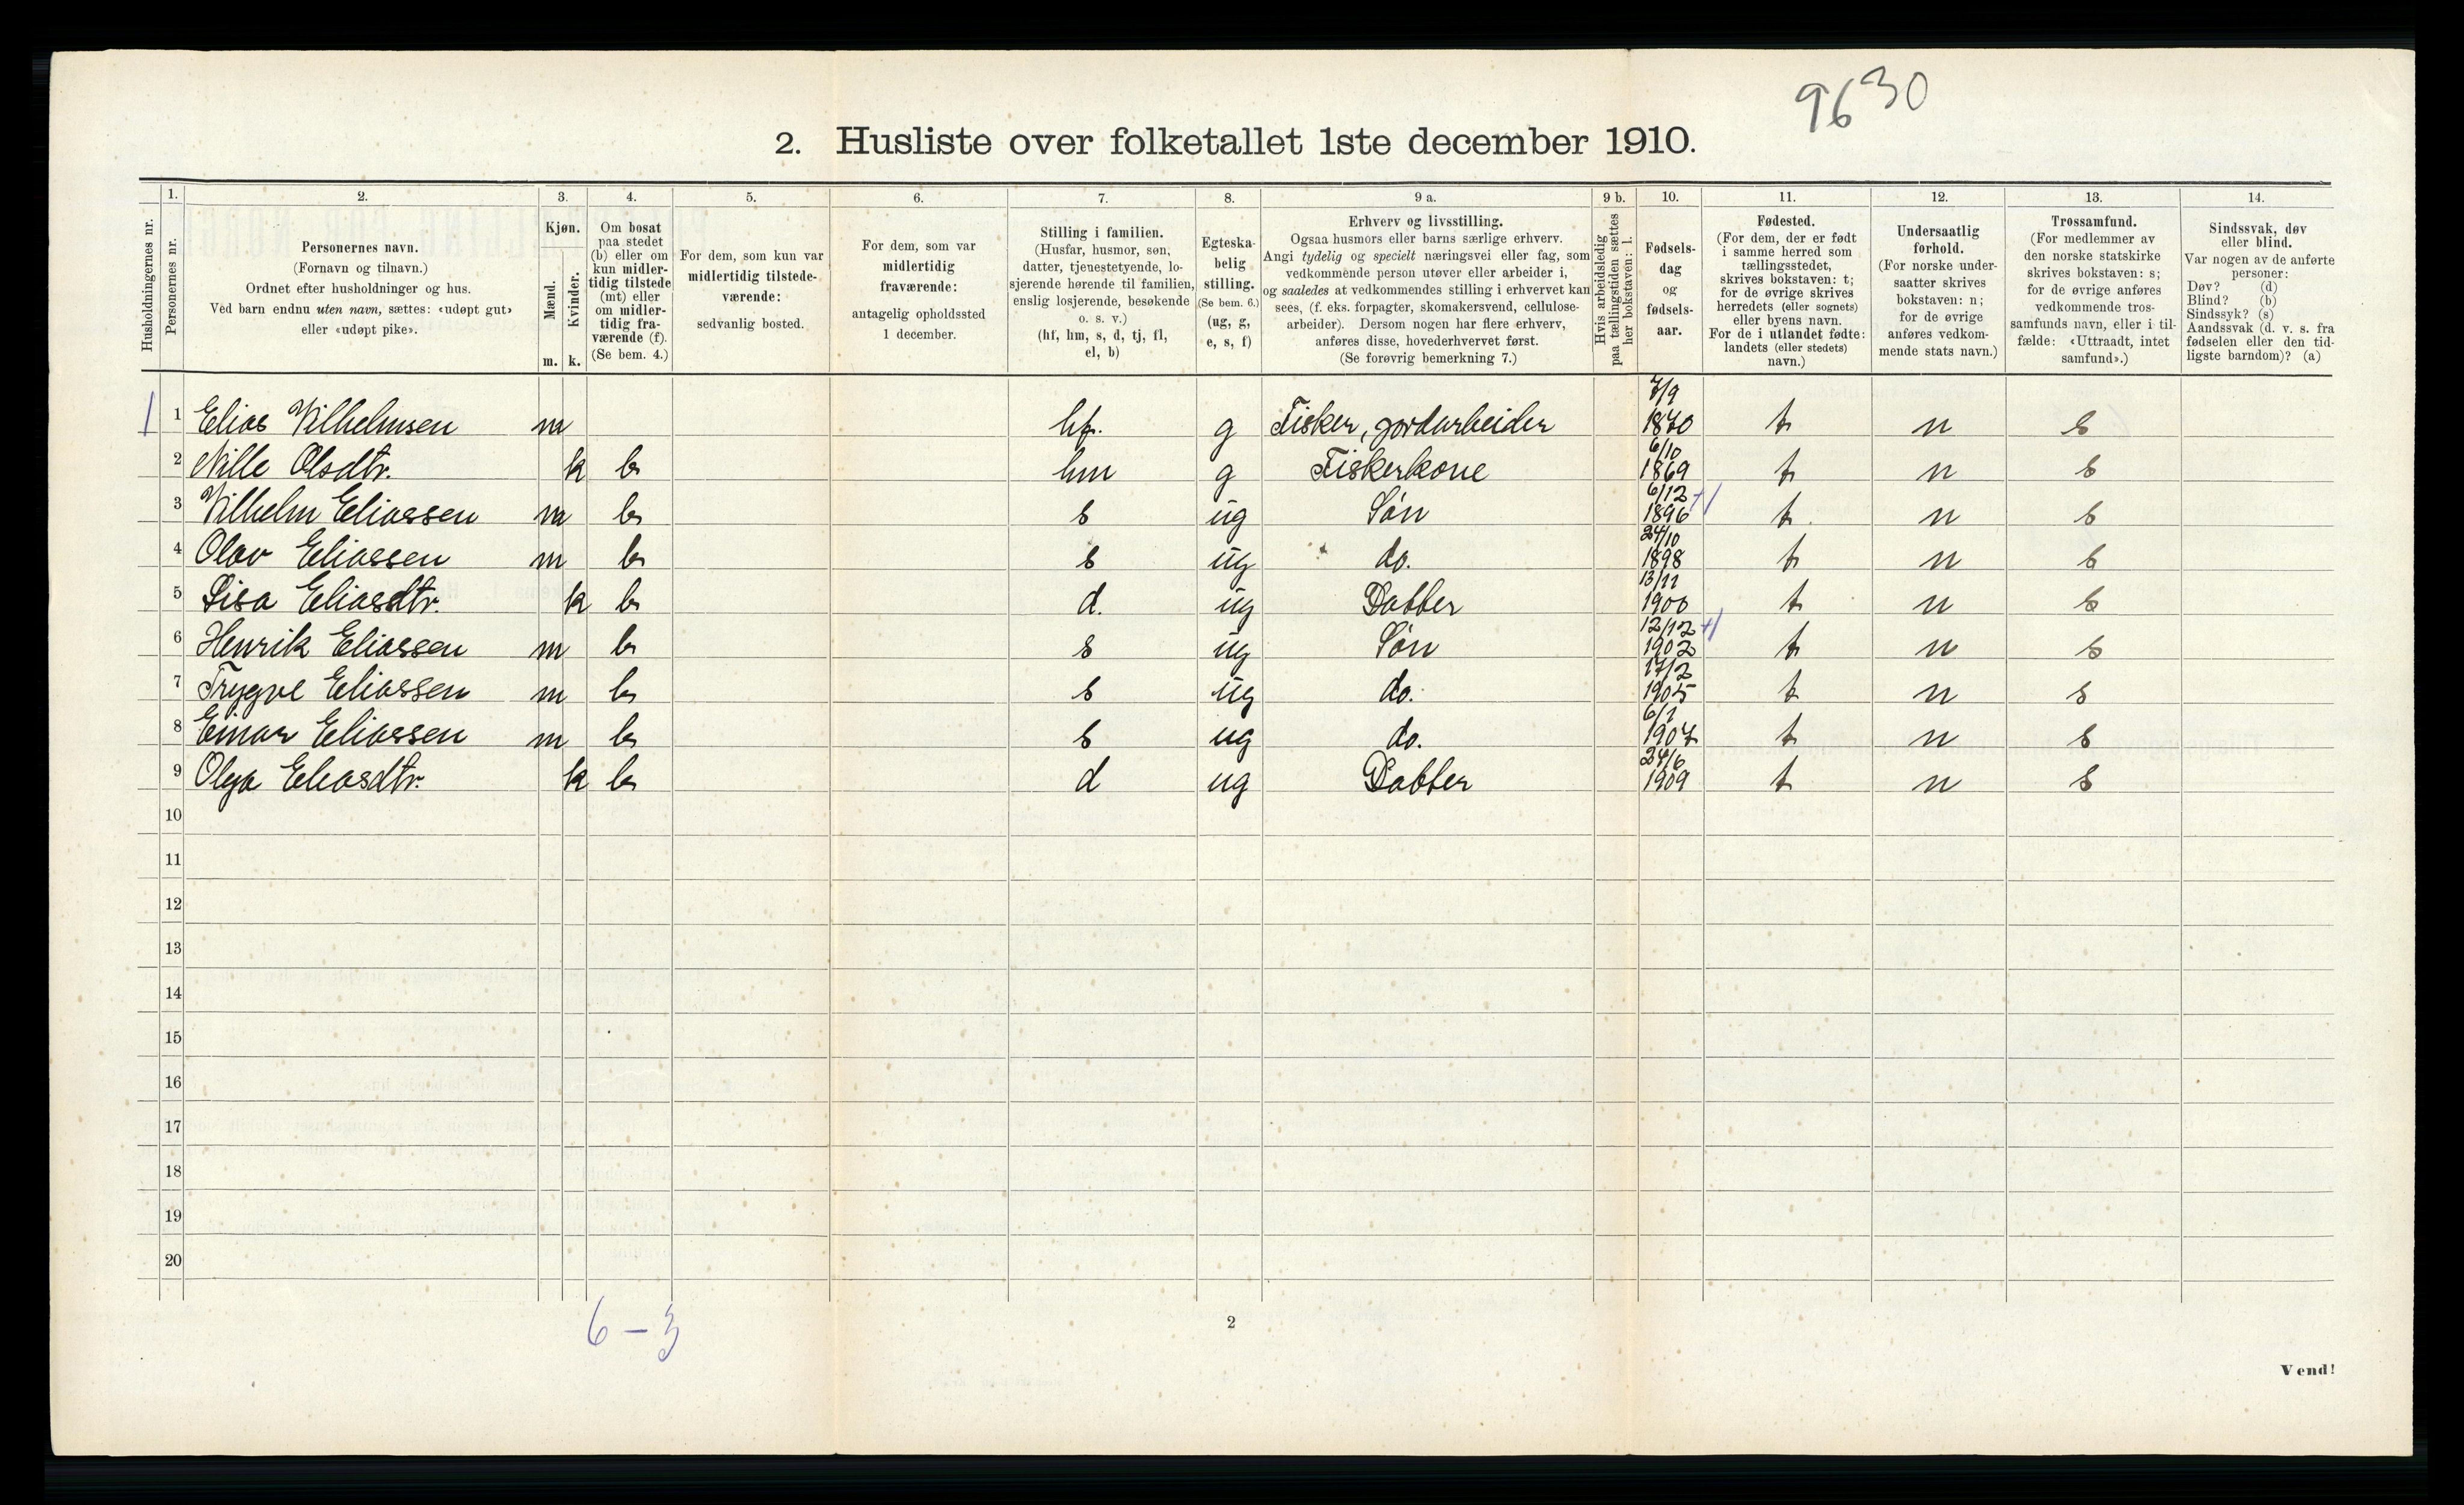 9630
2. Husliste over folketallet 1ste december 1910.
Husholdningernes nr.
1. Personernes nr.
2. Personernes navn. (Fornavn og tilnavn.) Ordnet efter husholdninger og hus. Ved barn endnu uten navn, sættes: «udøpt gut» eller «udøpt pike».
3. Kjøn. Mænd. m. Kvinder. k.
4. Om bosat paa stedet (b) eller om kun midlertidig tilstede (mt) eller om midlertidig fraværende (f). (Se bem. 4.)
5. For dem, som kun var midlertidig tilstedeværende: sedvanlig bosted.
6. For dem, som var midlertidig fraværende: antagelig opholdssted 1 december.
7. Stilling i familien. (Husfar, husmor, søn, datter, tjenestetyende, losjerende hørende til familien, enslig losjerende, besøkende o. s. v.) (hf, hm, s, d, tj, fl, el, b)
8. Egteskabelig stilling. (Se bem. 6.) (ug, g, e, s, f)
9 a. Erhverv og livsstilling. Ogsaa husmors eller barns særlige erhverv. Angi tydelig og specielt næringsvei eller fag, som vedkommende person utøver eller arbeider i, og saaledes at vedkommendes stilling i erhvervet kan sees, (f. eks. forpagter, skomakersvend, cellulosearbeider). Dersom nogen har flere erhverv, anføres disse, hovederhvervet først. (Se forøvrig bemerkning 7.)
9 b. Hvis arbeidsledig paa tællingstiden sættes her bokstaven: l.
10. Fødselsdag og fødselsaar.
11. Fødested. (For dem, der er født i samme herred som tællingsstedet, skrives bokstaven: t; for de øvrige skrives herredets (eller sognets) eller byens navn. For de i utlandet fødte: landets (eller stedets) navn.)
12. Undersaatlig forhold. (For norske undersaatter skrives bokstaven: n; for de øvrige anføres vedkommende stats navn.)
13. Trossamfund. (For medlemmer av den norske statskirke skrives bokstaven: s; for de øvrige anføres vedkommende trossamfunds navn, eller i tilfælde: «Uttraadt, intet samfund».)
14. Sindssvak, døv eller blind. Var nogen av de anførte personer: Døv? (d) Blind? (b) Sindssyk? (s) Aandssvak (d. v. s. fra fødselen eller den tidligste barndom)? (a)
1 1 Elias Vilhelmsen m hf. g Fisker, jordarbeider 7/9 1870 t n s
2 Nille Olsdtr. k b hm g Fiskerkone 6/10 1869 t n s
3 Vilhelm Eliassen m b s ug Søn 6/12 1896 +1 t n s
4 Olav Eliassen m b s ug do. 24/10 1898 t n s
5 Lisa Eliasdtr. k b d. ug Datter 13/11 1900 t n s
6 Henrik Eliassen m b s ug Søn 12/12 1902 +1 t n s
7 Trygve Eliassen m b s ug do. 17/2 1905 t n s
8 Einar Eliassen m b s ug do. 6/1 1907 t n s
9 Olga Eliasdtr. k b d ug Datter 24/6 1909 t n s
10
11
12
13
14
15
16
17
18
19
20
6 - 3
2
Vend!